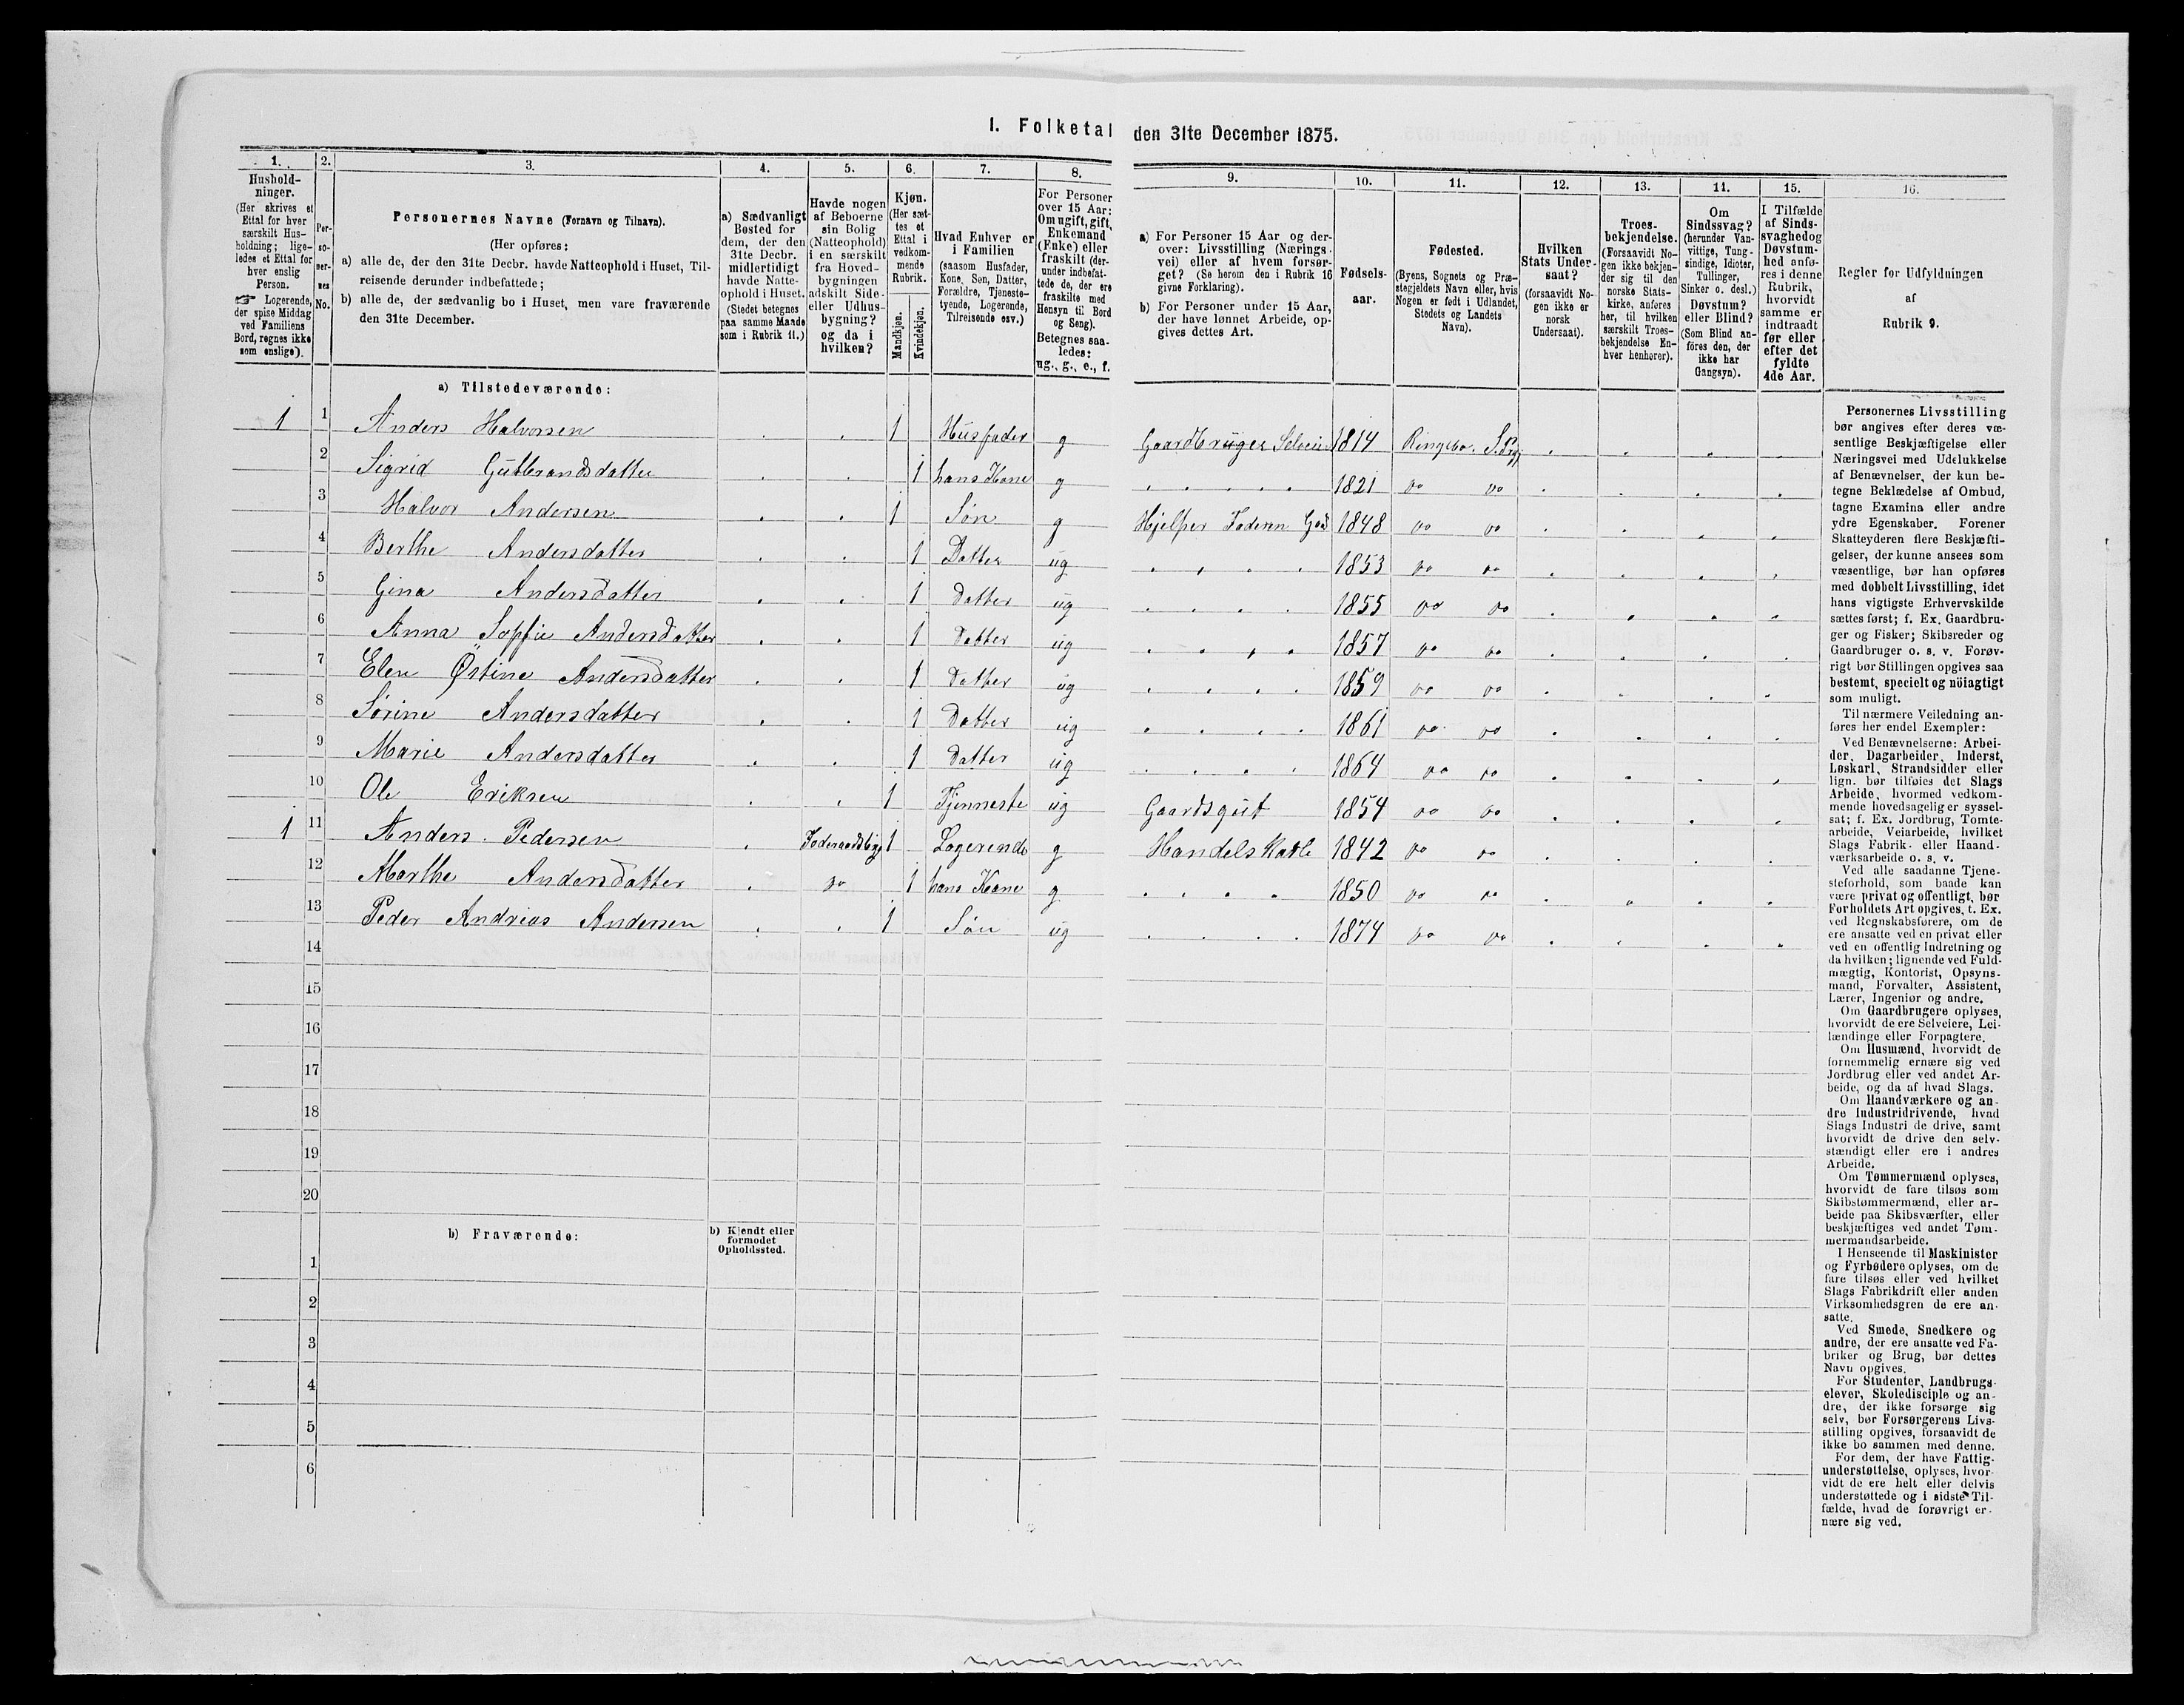 I. Folketal den 31te December 1875.
1. 2. 3. 4. 5. 6. 7. 8. 9. 10. 11. 12. 13. 14. 15. 16.
Hushold-
ninger.
(Her skrives et
Ettal for hver
særskilt Hus-
holdning; lige-
ledes et Ettal for
hver enslig
Person.
☞ Logerende,
der spise Middag
ved Familiens
Bord, regnes ikke
som enslige).
Per-
so-
ner-
nes
No.
Personernes Navne (Fornavn og Tilnavn).
(Her opføres:
a) alle de, der den 31te Decbr. havde Natteophold i Huset, Til-
reisende derunder indbefattede;
b) alle de, der sædvanlig bo i Huset, men vare fraværende
den 31te December.
a) Sædvanligt
Bosted for
dem, der den
31te Decbr.
midlertidigt
havde Natte-
ophold i Huset.
(Stedet betegnes
paa samme Maade
som i Rubrik 11.)
Havde nogen
af Beboerne
sin Bolig
(Natteophold)
i en særskilt
fra Hoved-
bygningen
adskilt Side-
eller Udhus-
bygning?
og da i
hvilken?
Kjøn.
(Her sæt-
tes et
Ettal i
vedkom-
mende
Rubrik.
Mandkjøn.
Kvindekjøn.
Hvad Enhver er
i Familien
(saasom Husfader,
Kone, Søn, Datter,
Forældre, Tjeneste-
tyende, Logerende,
Tilreisende osv.)
For Personer
over 15 Aar:
Om ugift, gift,
Enkemand
(Enke) eller
fraskilt (der-
under indbefat-
tede de, der ere
fraskilte med
Hensyn til Bord
og Seng).
Betegnes saa-
ledes:
ug., g., e., f.
a) For Personer 15 Aar og der-
over: Livsstilling (Nærings-
vei) eller af hvem forsør-
get? (Se herom den i Rubrik 16
givne Forklaring).
b) For Personer under 15 Aar,
der have lønnet Arbeide, op-
gives dettes Art.
Fødsels-
aar.
Fødested.
(Byens, Sognets og Præ-
stegjeldets Navn eller, hvis
Nogen er født i Udlandet,
Stedets og Landets
Navn).
Hvilken
Stats Under-
saat?
(forsaavidt No-
gen ikke er
norsk
Undersaat).
Troes-
bekjendelse.
(Forsaavidt No-
gen ikke bekjen-
der sig til den
norske Stats-
kirke, anføres
her, til hvilken
særskilt Troes-
bekjendelse En-
hver henhører).
Om
Sindssvag?
(herunder Van-
vittige, Tung-
sindige, Idioter,
Tullinger,
Sinker o. desl.)
Døvstum?
eller Blind?
(Som Blind an-
føres den, der
ikke har
Gangsyn).
I Tilfælde
af Sinds-
svaghed og
Døvstum-
hed anfø-
res i denne
Rubrik,
hvorvidt
samme er
indtraadt
før eller
efter det
fyldte
4de Aar.
Regler for Udfyldningen
af
Rubrik 9.
a) Tilstedeværende:
1 1 Anders Halvorsen 1 Husfader g Gaardbruger Selveier 1814 Ringebo
2 Sigrid Gulbrandsdatter 1 hans Kone g 1821 do do
3 Halvor Andersen 1 Søn g Hjelper Faderen 1848 do do
4 Berthe Andersdatter 1 Datter ug 1853 do do
5 Gina Andersdatter 1 Datter ug 1855 do do
6 Anna Sopfie Andersdatter 1 Datter ug 1857 do do
7 Elen Østine Andersdatter 1 Datter ug 1859 do do
8 Sørine Andersdatter 1 Datter ug 1861 do do
9 Marie Andersdatter 1 Datter ug 1864 do do
10 Ole Eriksen 1 Tjenneste ug Gaardsgut 1854 do do
1 11 Anders Pedersen 1 Logerende g Handels Karl 1842 do do
12 Marthe Andersdatter do 1 hans Kone g 1850 do do
13 Peder Andrias Andersen 1 Søn ug 1874 do do
14
15
16
17
18
19
20
b) Fraværende:
b) Kjendt eller
formodet
Opholdssted.
1
2
3
4
5
6
Personernes Livsstilling
bør angives efter deres væ-
sentlige Beskjæftigelse eller
Næringsvei med Udelukkelse
af Benævnelser, der kun be-
tegne Beklædelse af Ombud,
tagne Examina eller andre
ydre Egenskaber. Forener
Skatteyderen flere Beskjæfti-
gelser, der kunne ansees som
væsentlige, bør han opføres
med dobbelt Livsstilling, idet
hans vigtigste Erhvervskilde
sættes først; f. Ex. Gaardbru-
ger og Fisker; Skibsreder og
Gaardbruger o. s. v. Forøv-
rigt bør Stillingen opgives saa
bestemt, specielt og nöiagtigt
som muligt.
Til nærmere Veiledning an-
føres her endel Exempler:
Ved Benævnelserne: Arbei-
der, Dagarbeider, Inderst,
Løskarl, Strandsidder eller
lign. bør tilføies det Slags
Arbeide, hvormed vedkom-
mende hovedsagelig er syssel-
sat; f. Ex. Jordbrug, Tomte-
arbeide, Veiarbeide, hvilket
Slags Fabrik- eller Haand-
værksarbeide o. s. v.
Ved alle saadanne Tjene-
steforhold, som baade kan
være privat og offentligt, bør
Forholdets Art opgives, t. Ex.
ved Regnskabsførere, om de
ere ansatte ved en privat eller
ved en offentlig Indretning og
da hvilken; lignende ved Fuld-
mægtig, Kontorist, Opsyns-
mand, Forvalter, Assistent,
Lærer, Ingeniør og andre.
Om Gaardbrugere oplyses,
hvorvidt de ere Selveiere, Lei-
lændinge eller Forpagtere.
Om Husmænd, hvorvidt de
fornemmelig ernære sig ved
Jordbrug eller ved andet Ar-
beide, og da af hvad Slags.
Om Haandværkere og an-
dre Industridrivende, hvad
Slags Industri de drive, samt
hvorvidt de drive den selv-
stændigt eller ere i andres
Arbeide.
Om Tømmermænd oplyses,
hvorvidt de fare tilsøs som
Skibstømmermænd, eller ar-
beide paa Skibsværfter, eller
beskjæftiges ved andet Tøm-
mermandsarbeide.
I Henseende til Maskinister
og Fyrbødere oplyses, om de
fare tilsøs eller ved hvilket
Slags Fabrikdrift eller anden
Virksomhedsgren de ere an-
satte.
Ved Smede, Snedkere og
andre, der ere ansatte ved Fa-
briker og Brug, bør dettes
Navn opgives.
For Studenter, Landbrugs-
elever, Skoledisciple og an-
dre, der ikke forsørge sig
selv, bør Forsørgerens Livs-
stilling opgives, forsaavidt de
ikke bo sammen med denne.
For dem, der have Fattig-
understøttelse, oplyses, hvor-
vidt de ere helt eller delvis
understøttede og i sidste Til-
fælde, hvad de forøvrigt er-
nære sig ved.